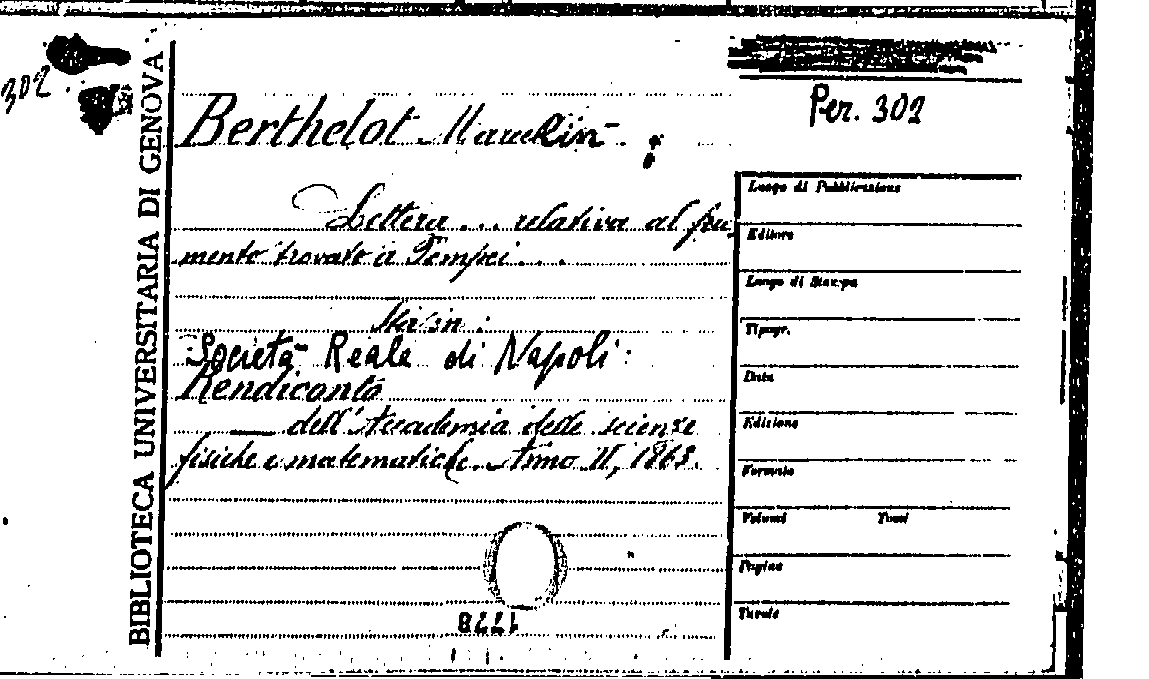 302
BIBLIOTECA UNIVERSITARIA DI GENOVA
Per. 302
Berthelot Marcelin.
Lettera... relativa al fru-
mento trovato a Pompei...
Sta in:
Società Reale di Napoli:
Rendiconto
— dell'Accademia delle scienze
fisiche e matematiche. Anno II, 1863.
Luogo di Pubblicazione
Editore
Luogo di Stampa
Tipogr.
Data
Edizione
Formato
Volumi Tomi
Pagine
Tavole
1778